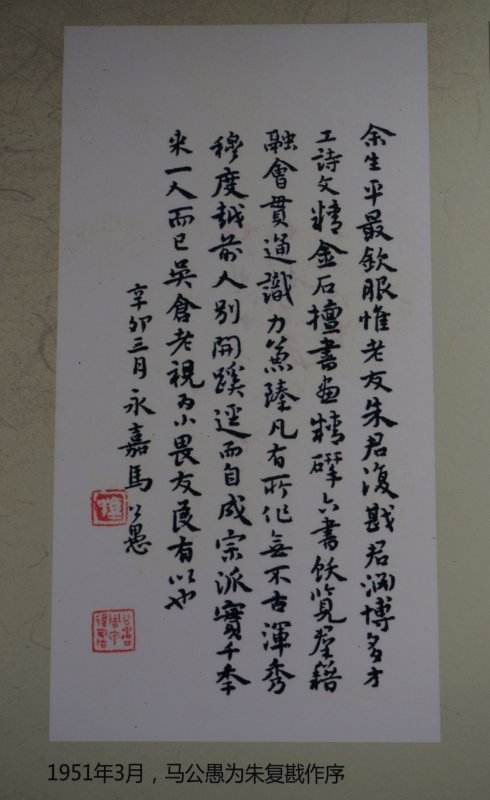 余生平最欽服惟老友朱君復戡君淵博多才
工詩文精金石擅書畫精研六書飫覽羣籍
融會貫通識力兼臻凡有所作無不古渾秀
穆度越前人別開蹊逕而自成宗派實千季
來一人而已吳倉老視為小畏友良有以也
辛卯三月永嘉馬公愚
1951年3月，马公愚为朱复戡作序